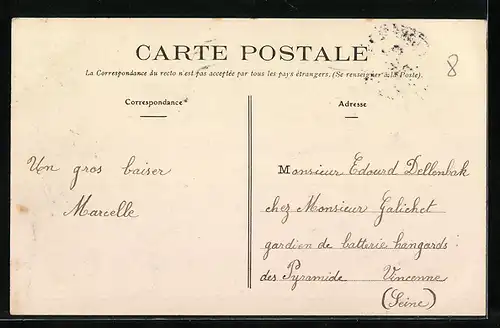 CARTE POSTALE
La Correspondance du recto n'est pas acceptée par tous les pays étrangers. (Se renseigner à la Poste).
8
Correspondance
Adresse
Un gros baiser
Marcelle
Monsieur Edouard Dellenbak
chez Monsieur Galichet
gardien de batterie hangards
des Pyramide Vincenne
(Seine)